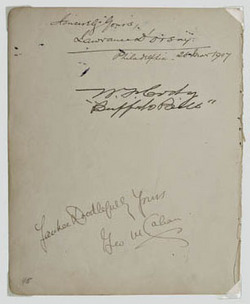 Yours,
Lawrance D'Orsay.
Philadelphia. 1907
W. F. Cody
"Buffalo Bill"
Yankee Doodlefully Yours
Geo M Cohan